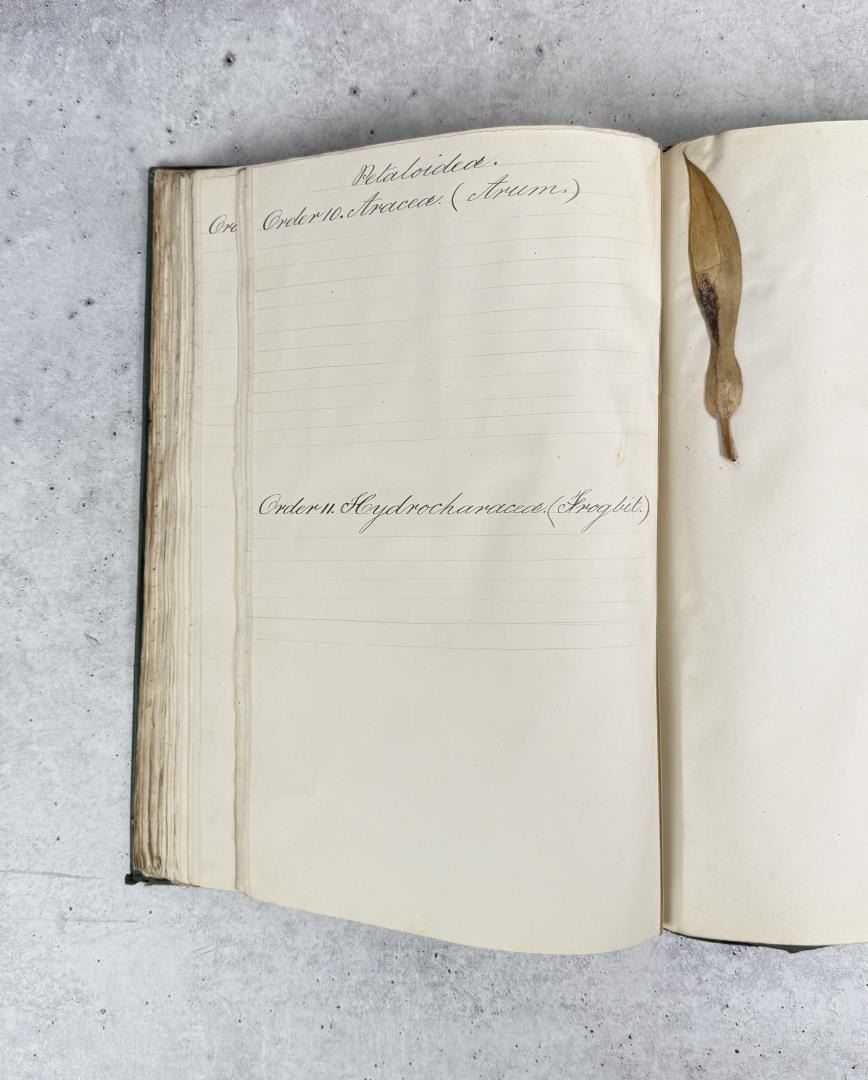 Petaloideæ.
Ord
Order 10. Araceæ. (Arum.)
Order 11. Hydrocharaceæ. (Frogbit.)